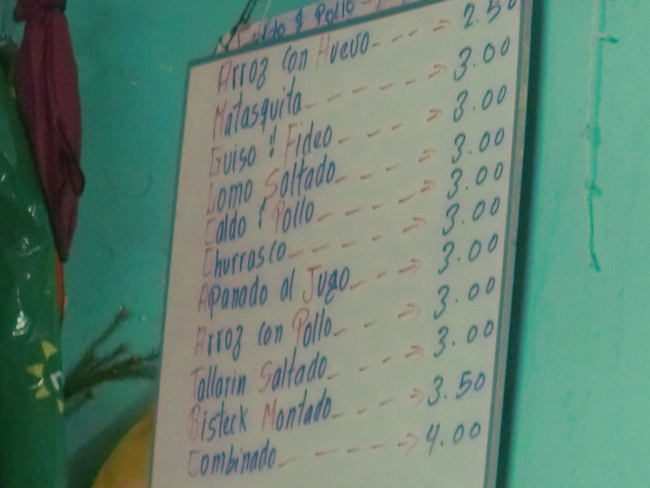 Caldo d Pollo
Arroz con Huevo ---→ 2.50
Matasquita -----→ 3.00
Guiso d Fideo ---→ 3.00
Lomo Saltado ---→ 3.00
Caldo d Pollo ---→ 3.00
Churrasco -----→ 3.00
Apanado al Jugo ---→ 3.00
Arroz con Pollo ---→ 3.00
Tallarin Saltado ---→ 3.00
Bisteck Montado ---→ 3.50
Combinado -----→ 4.00